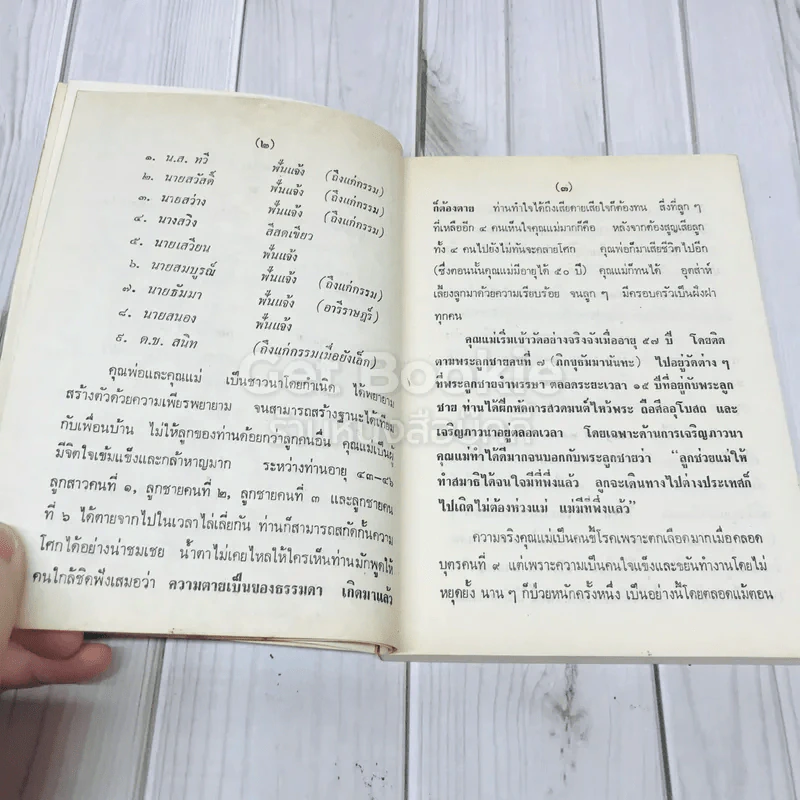 (๒)
๑. น.ส. ทวี ฟั่นแจ้ง (ถึงแก่กรรม)
๒. นายสวัสดิ์ ฟั่นแจ้ง (ถึงแก่กรรม)
๓. นายสว่าง ฟั่นแจ้ง (ถึงแก่กรรม)
๔. นางสวิง สีสดเขียว
๕. นายเสวียน ฟั่นแจ้ง
๖. นายสมบูรณ์ ฟั่นแจ้ง (ถึงแก่กรรม)
๗. นายธัมมา ฟั่นแจ้ง (อารีราษฎร์)
๘. นายสนอง ฟั่นแจ้ง
๙. ด.ช. สนิท (ถึงแก่กรรมเมื่อยังเล็ก)
คุณพ่อและคุณแม่ เป็นชาวนาโดยกำเนิด ได้พยายาม
สร้างตัวด้วยความเพียรพยายาม จนสามารถสร้างฐานะได้เทียม
กับเพื่อนบ้าน ไม่ให้ลูกของท่านด้อยกว่าลูกคนอื่น คุณแม่เป็นผู้
มีจิตใจเข้มแข็งและกล้าหาญมาก ระหว่างท่านอายุ ๔๓-๔๖
ลูกสาวคนที่ ๑, ลูกชายคนที่ ๒, ลูกชายคนที่ ๓ และลูกชายคน
ที่ ๖ ได้ตายจากไปในเวลาไล่เลี่ยกัน ท่านก็สามารถสกัดกั้นความ
โศกได้อย่างน่าชมเชย น้ำตาไม่เคยไหลให้ใครเห็นท่านมักพูดให้
คนใกล้ชิดฟังเสมอว่า ความตายเป็นของธรรมดา เกิดมาแล้ว
(๓)
ก็ต้องตาย ท่านทำใจได้ถึงเสียดายเสียใจก็ต้องทน สิ่งที่ลูก ๆ
ที่เหลืออีก ๔ คนเห็นใจคุณแม่มากก็คือ หลังจากต้องสูญเสียลูก
ทั้ง ๔ คนไปยังไม่ทันจะคลายโศก คุณพ่อก็มาเสียชีวิตไปอีก
(ซึ่งตอนนั้นคุณแม่มีอายุได้ ๕๐ ปี) คุณแม่ก็ทนได้ อุตส่าห์
เลี้ยงลูกมาด้วยความเรียบร้อย จนลูก ๆ มีครอบครัวเป็นฝั่งฝา
ทุกคน
คุณแม่เริ่มเข้าวัดอย่างจริงจังเมื่ออายุ ๕๗ ปี โดยติด
ตามพระลูกชายคนที่ ๗ (ภิกษุธัมมานันทะ) ไปอยู่วัดต่าง ๆ
ที่พระลูกชายจำพรรษา ตลอดระยะเวลา ๑๕ ปีที่อยู่กับพระลูก
ชาย ท่านได้ฝึกหัดการสวดมนต์ไหว้พระ ถือศีลอุโบสถ และ
เจริญภาวนาอยู่ตลอดเวลา โดยเฉพาะด้านการเจริญภาวนา
คุณแม่ทำได้ดีมากจนบอกกับพระลูกชายว่า "ลูกช่วยแม่ให้
ทำสมาธิได้จนใจมีที่พึ่งแล้ว ลูกจะเดินทางไปต่างประเทศก็
ไปเถิดไม่ต้องห่วงแม่ แม่มีที่พึ่งแล้ว"
ความจริงคุณแม่เป็นคนขี้โรคเพราะตกเลือดมากเมื่อคลอด
บุตรคนที่ ๙ แต่เพราะความเป็นคนใจแข็งและขยันทำงานโดยไม่
หยุดยั้ง นาน ๆ ก็ป่วยหนักครั้งหนึ่ง เป็นอย่างนี้โดยตลอดแม้ตอน
Get Bookie
ร้านหนังสือมือ